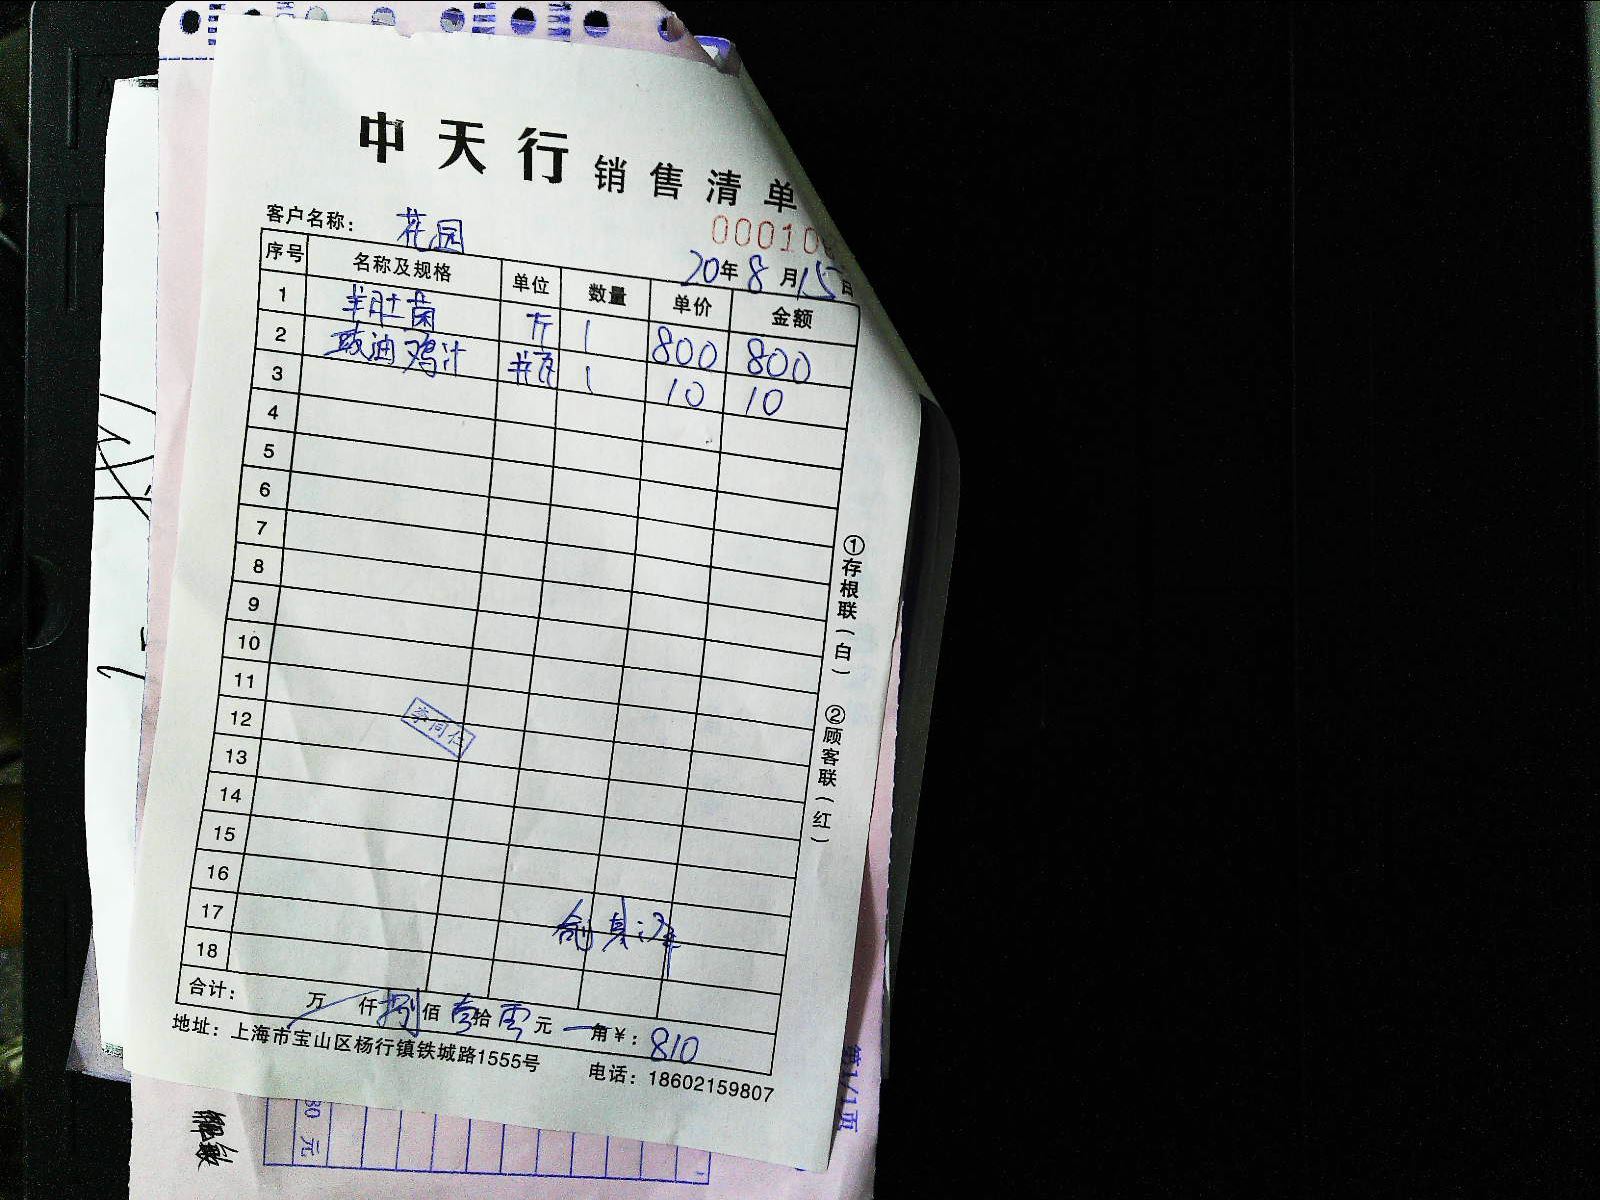 中天行 销售清单
客户名称： 花园
00010
20年8月15日
序号 名称及规格 单位 数量 单价 金额
1 羊肚菌 斤 1 800 800
2 豉油鸡汁 瓶 1 10 10
3
4
5
6
7
8
9
10
11
12
13
14
15
16
17
18
李同仁
合计： 万 仟捌佰壹拾零元 角￥：810
地址：上海市宝山区杨行镇铁城路1555号
电话：18602159807
①存根联（白） ②顾客联（红）
第1/1页
30 元